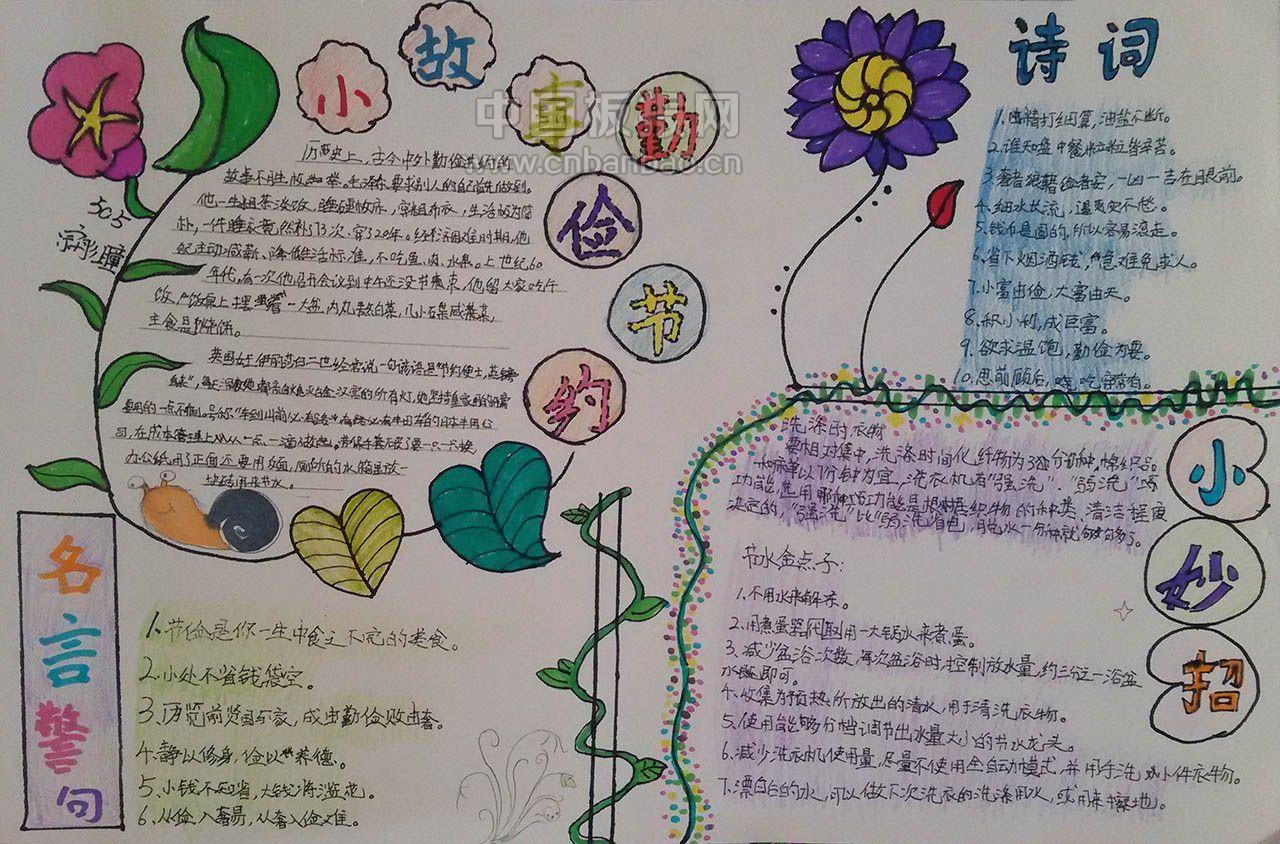 小故事勤俭节约
历史上，古今中外勤俭节约的
故事不胜枚举。毛泽东要求别人的自己首先做到。
他一生粗茶淡饭，睡硬板床，穿粗布衣，生活极为简
朴，一件睡衣竟然补了73次、穿了20年。经济困难时期，他
纪主动减薪、降低生活标准，不吃鱼、肉、水果。上世纪60
年代，有一次他召开会议到中午还没有结束，他留大家吃午
饭，餐桌上摆着一大盆肉丸熬白菜，几小石桌咸菜，
主食是烧饼。
英国女王伊丽莎白二世经常说一句谚语是"节约便士，英镑
要用的一点不假。号称"车到山前必有路，有路必有丰田车"的日本丰田公
司，在成本管理上从一点一滴做起，
办公纸用了正面还要用反面，厕所的水箱里放一
块砖用来节水。
505
诗词
1.精打细算，油盐不断。
2.谁知盘中餐粒粒皆辛苦。
3.奢者狼藉俭者安，一凶一吉在眼前。
4.细水长流，遇灾不愁。
5.钱币是圆的，所以容易滚走。
6.省下烟酒钱，急难免求人。
7.小富由俭，大富由天。
8.积小利，成巨富。
9.欲求温饱，勤俭为要。
10.思前顾后，吃穿常有。
小妙招
洗涤时衣物
要相对集中，洗涤时间化纤物为3
以7分钟为宜，洗衣机有"强洗"、"弱洗"
功能，选用哪种功能是根据织物的种类、清洁程度
决定的，"强洗"比"弱洗"省电，脱水一分钟就够了。
节水金点子：
1.不用水来解冻。
2.用煮蛋器取用一大锅水来煮蛋。
3.减少盆浴次数，每次盆浴时，控制放水量，约三分之一浴盆
水即可。
4.收集为预热所放出的清水，用于清洗衣物。
5.使用能够分档调节出水量大小的节水龙头。
6.减少洗衣机使用量，尽量不使用全自动模式，并用手洗小件衣物。
7.漂白的水，可以做下次洗衣的洗涤用水，或用来擦地。
名言警句
1.节俭是你一生中食之不完的美食。
2.小处不省钱袋空。
3.历览前贤国与家，成由勤俭败由奢。
4.静以修身，俭以养德。
5.小钱不知省，大钱将滥花。
6.从俭入奢易，从奢入俭难。
中国板报网
www.cnbanbao.cn